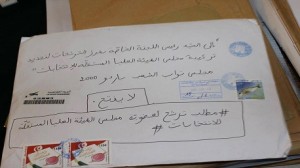 إلى السيد رئيس اللجنة الخاصة بفرز الترشحات لعضوية
تركيبة مجلس الهيئة العليا المستقلة للإنتخابات
مجلس نواب الشعب باردو 2000
لا يفتح.
# مطلب ترشح لعضوية مجلس الهيئة العليا المستقلة
للإنتخابات #